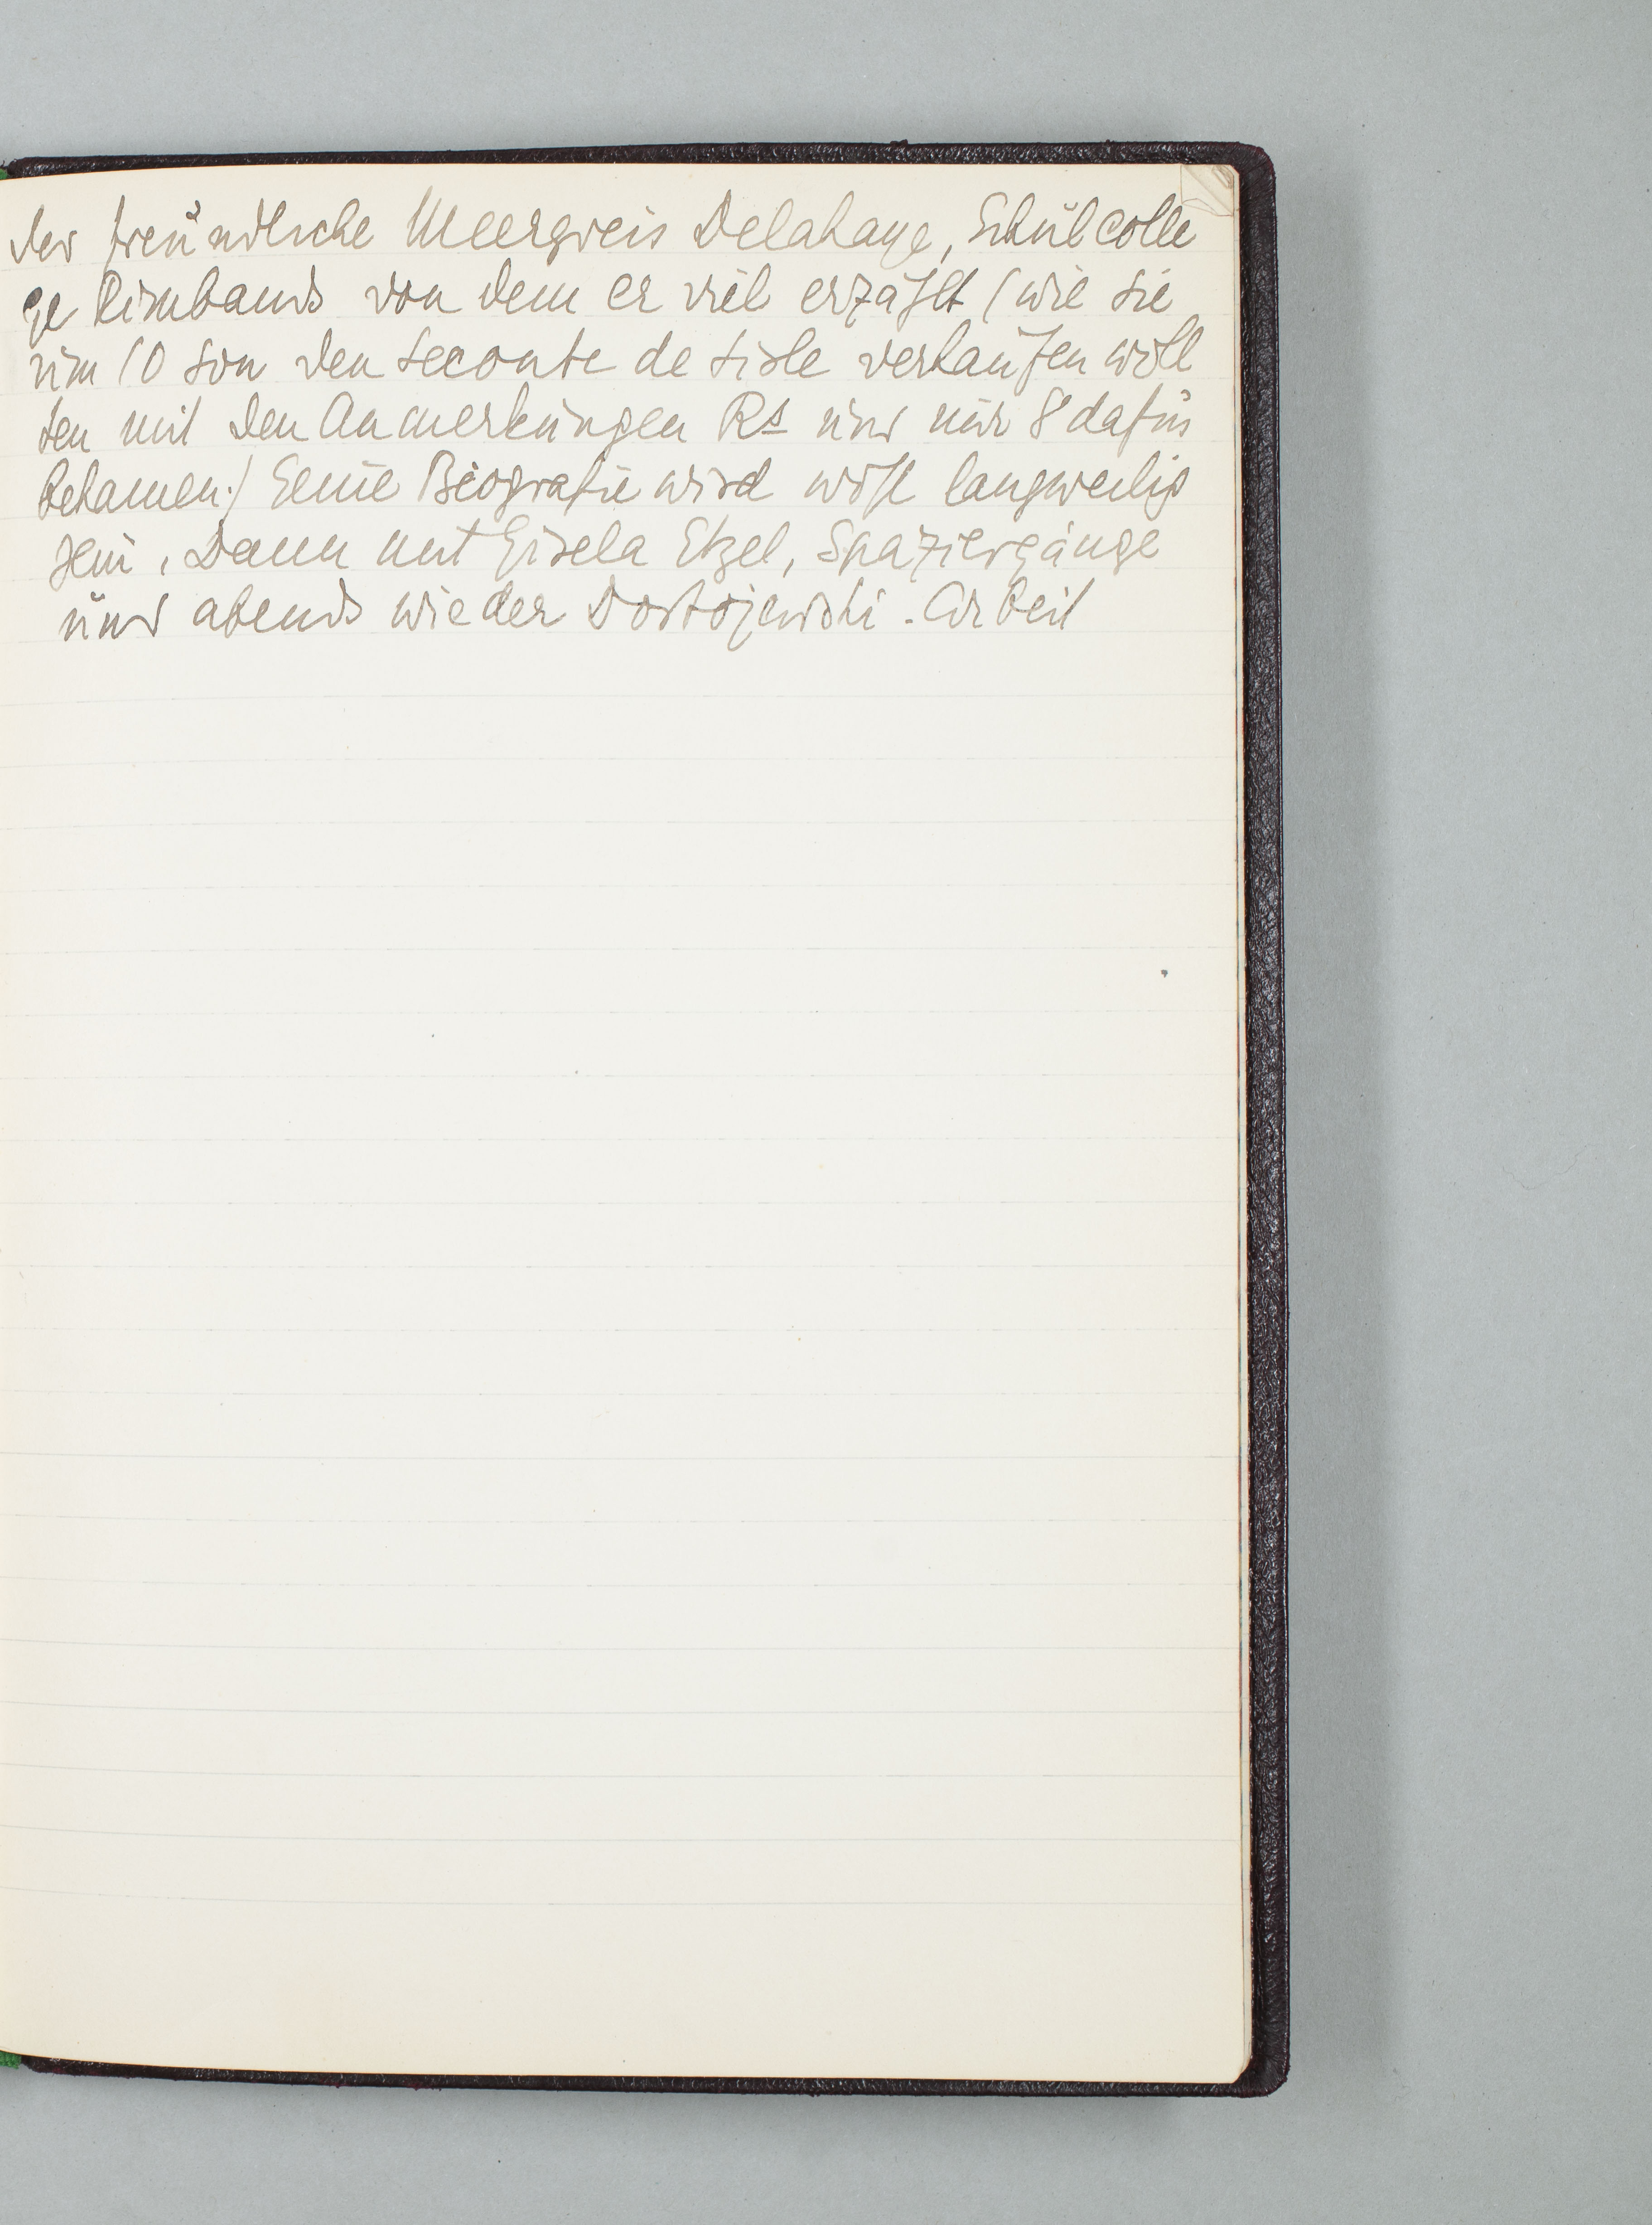 der freundliche Meergreis Delahaye, Schulcolle
ge Rimbauds von dem er viel erzählt (wie sie
um 10 sou den Leconte de Lisle verkaufen woll
ten mit den Anmerkungen Rs und nur 8 dafür
bekamen.) Seine Biografie wird wohl langweilig
sein. Dann mit Gisela Etzel, Spaziergänge
und abends wieder Dostojewski-Arbeit